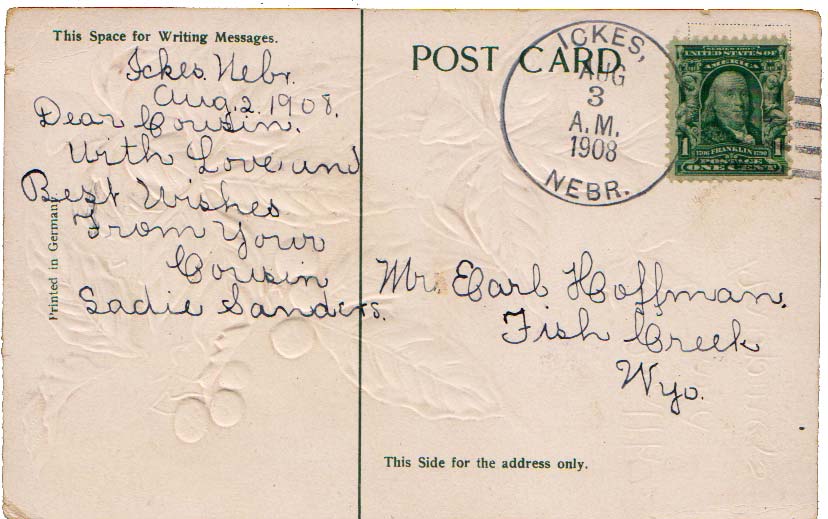 This Space for Writing Messages.
Ickes. Nebr.
Aug. 2. 1908.
Dear Cousin.
With Love and
Best Wishes
From Your
Cousin
Sadie Sanders.
Printed in Germany
POST CARD.
ICKES,
AUG
3
A.M.
1908
NEBR.
SERIES 1902
UNITED STATES OF
AMERICA
1706 FRANKLIN 1790
1 POSTAGE 1
ONE CENT
Mr. Earl Hoffman.
Fish Creek
Wyo.
This Side for the address only.